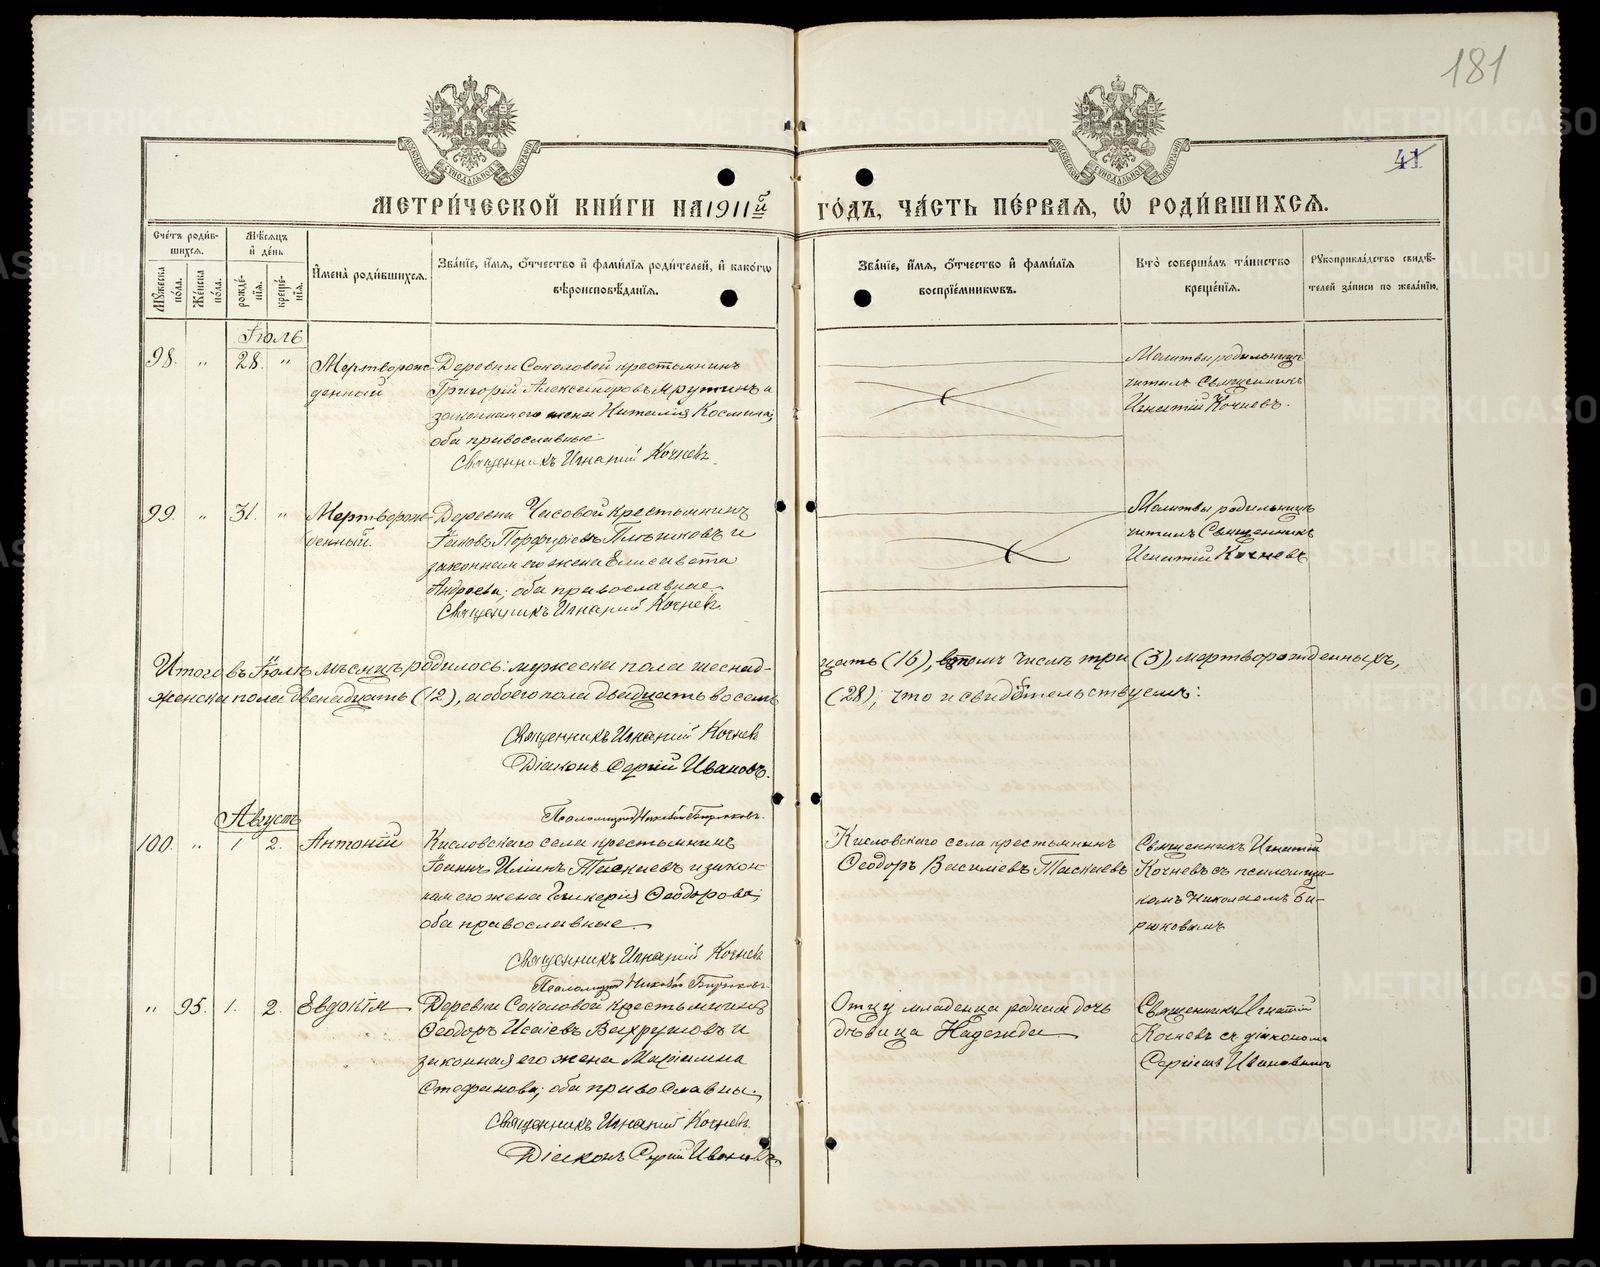 181
41
МЕТРИ́ЧЕСКОЙ КНИ́ГИ НА 1911й ГО́ДЪ, ЧА́СТЬ ПЕ́РВАЯ, Ѡ РОДИ́ВШИХСЯ.
Сче́тъ роди́в-
шихся.
Му́жеска
по́ла.
Же́нска
по́ла.
Мѣ́сяцъ
и҆ де́нь
рожде́-
нїя.
креще́-
нїя.
И҆мена̀ роди́вшихся.
Зва́нїе, и҆́мя, ѻ҆́тчество и҆ фами́лїя роди́телей, и҆ како́гѡ
вѣроисповѣ́данїя.
Зва́нїе, и҆́мя, ѻ҆́тчество и҆ фами́лїя
воспрїе́мникѡвъ.
Кто̀ соверша́лъ та́инство
креще́нїя.
Рꙋкоприкла́дство свидѣ́-
телей за́писи по жела́нїю.
Іюль
98. " 28. " Мертворож-
денный
Деревни Соколовой крестьянинъ
Григорій Александровъ Мрутинъ и
законная его жена Наталія Космина,
оба православные
Священникъ Игнатій Кочневъ
Молитвы родильницѣ
читалъ Священникъ
Игнатій Кочневъ.
99. " 31. " Мертворож-
денный.
Деревни Часовой крестьянинъ
Іаковъ Порфиріевъ Плотниковъ и
законная его жена Елисавета
Андреева, оба православные
Священникъ Игнатій Кочневъ
Молитвы родильницѣ
читалъ Священникъ
Игнатій Кочневъ
Итого въ Іюлѣ мѣсяцѣ родилось: мужеска пола шеснад-
цать (16), въ томъ числѣ три (3), мертворожденныхъ,
женска пола двенадцать (12), а обоего пола двадцать восемь
(28), что и свидѣтельствуемъ:
Священникъ Игнатій Кочневъ
Діаконъ Сергій Ивановъ.
Псаломщикъ Николай Бирюковъ.
Августъ
100. " 1 2. Антоній
Кисловскаго села крестьянинъ
Іоаннъ Илiинъ Таскаевъ и закон-
ная его жена Гликерія Ѳеодорова,
оба православные
Священникъ Игнатій Кочневъ
Псаломщикъ Николай Бирюковъ
Кисловскаго села крестьянинъ
Ѳеодоръ Василіевъ Таскаевъ
Священникъ Игнатій
Кочневъ съ псаломщи-
комъ Николаемъ Би-
рюковымъ
" 95. 1. 2. Евдокія
Деревни Соколовой крестьянинъ
Ѳеодоръ Исаіевъ Вахрушовъ и
законная его жена Маріамна
Стефанова, оба православны.
Священникъ Игнатій Кочневъ
Діаконъ Сергій Ивановъ
Отцу младенца родная дочь
дѣвица Надежда
Священникъ Игнатій
Кочневъ съ діакономъ
Сергіемъ Ивановымъ
METRIKI.GASO-URAL.RU